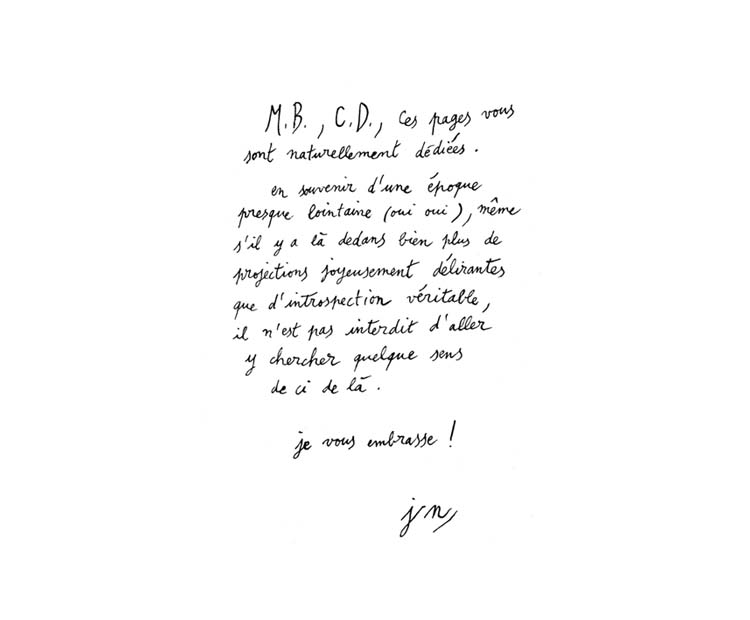 M.B., C.D., Ces pages vous
sont naturellement dédiées.
en souvenir d'une époque
presque lointaine (oui oui), même
s'il y a là dedans bien plus de
projections joyeusement délirantes
que d'introspection véritable,
il n'est pas interdit d'aller
y chercher quelque sens
de ci de là.
je vous embrasse !
jn